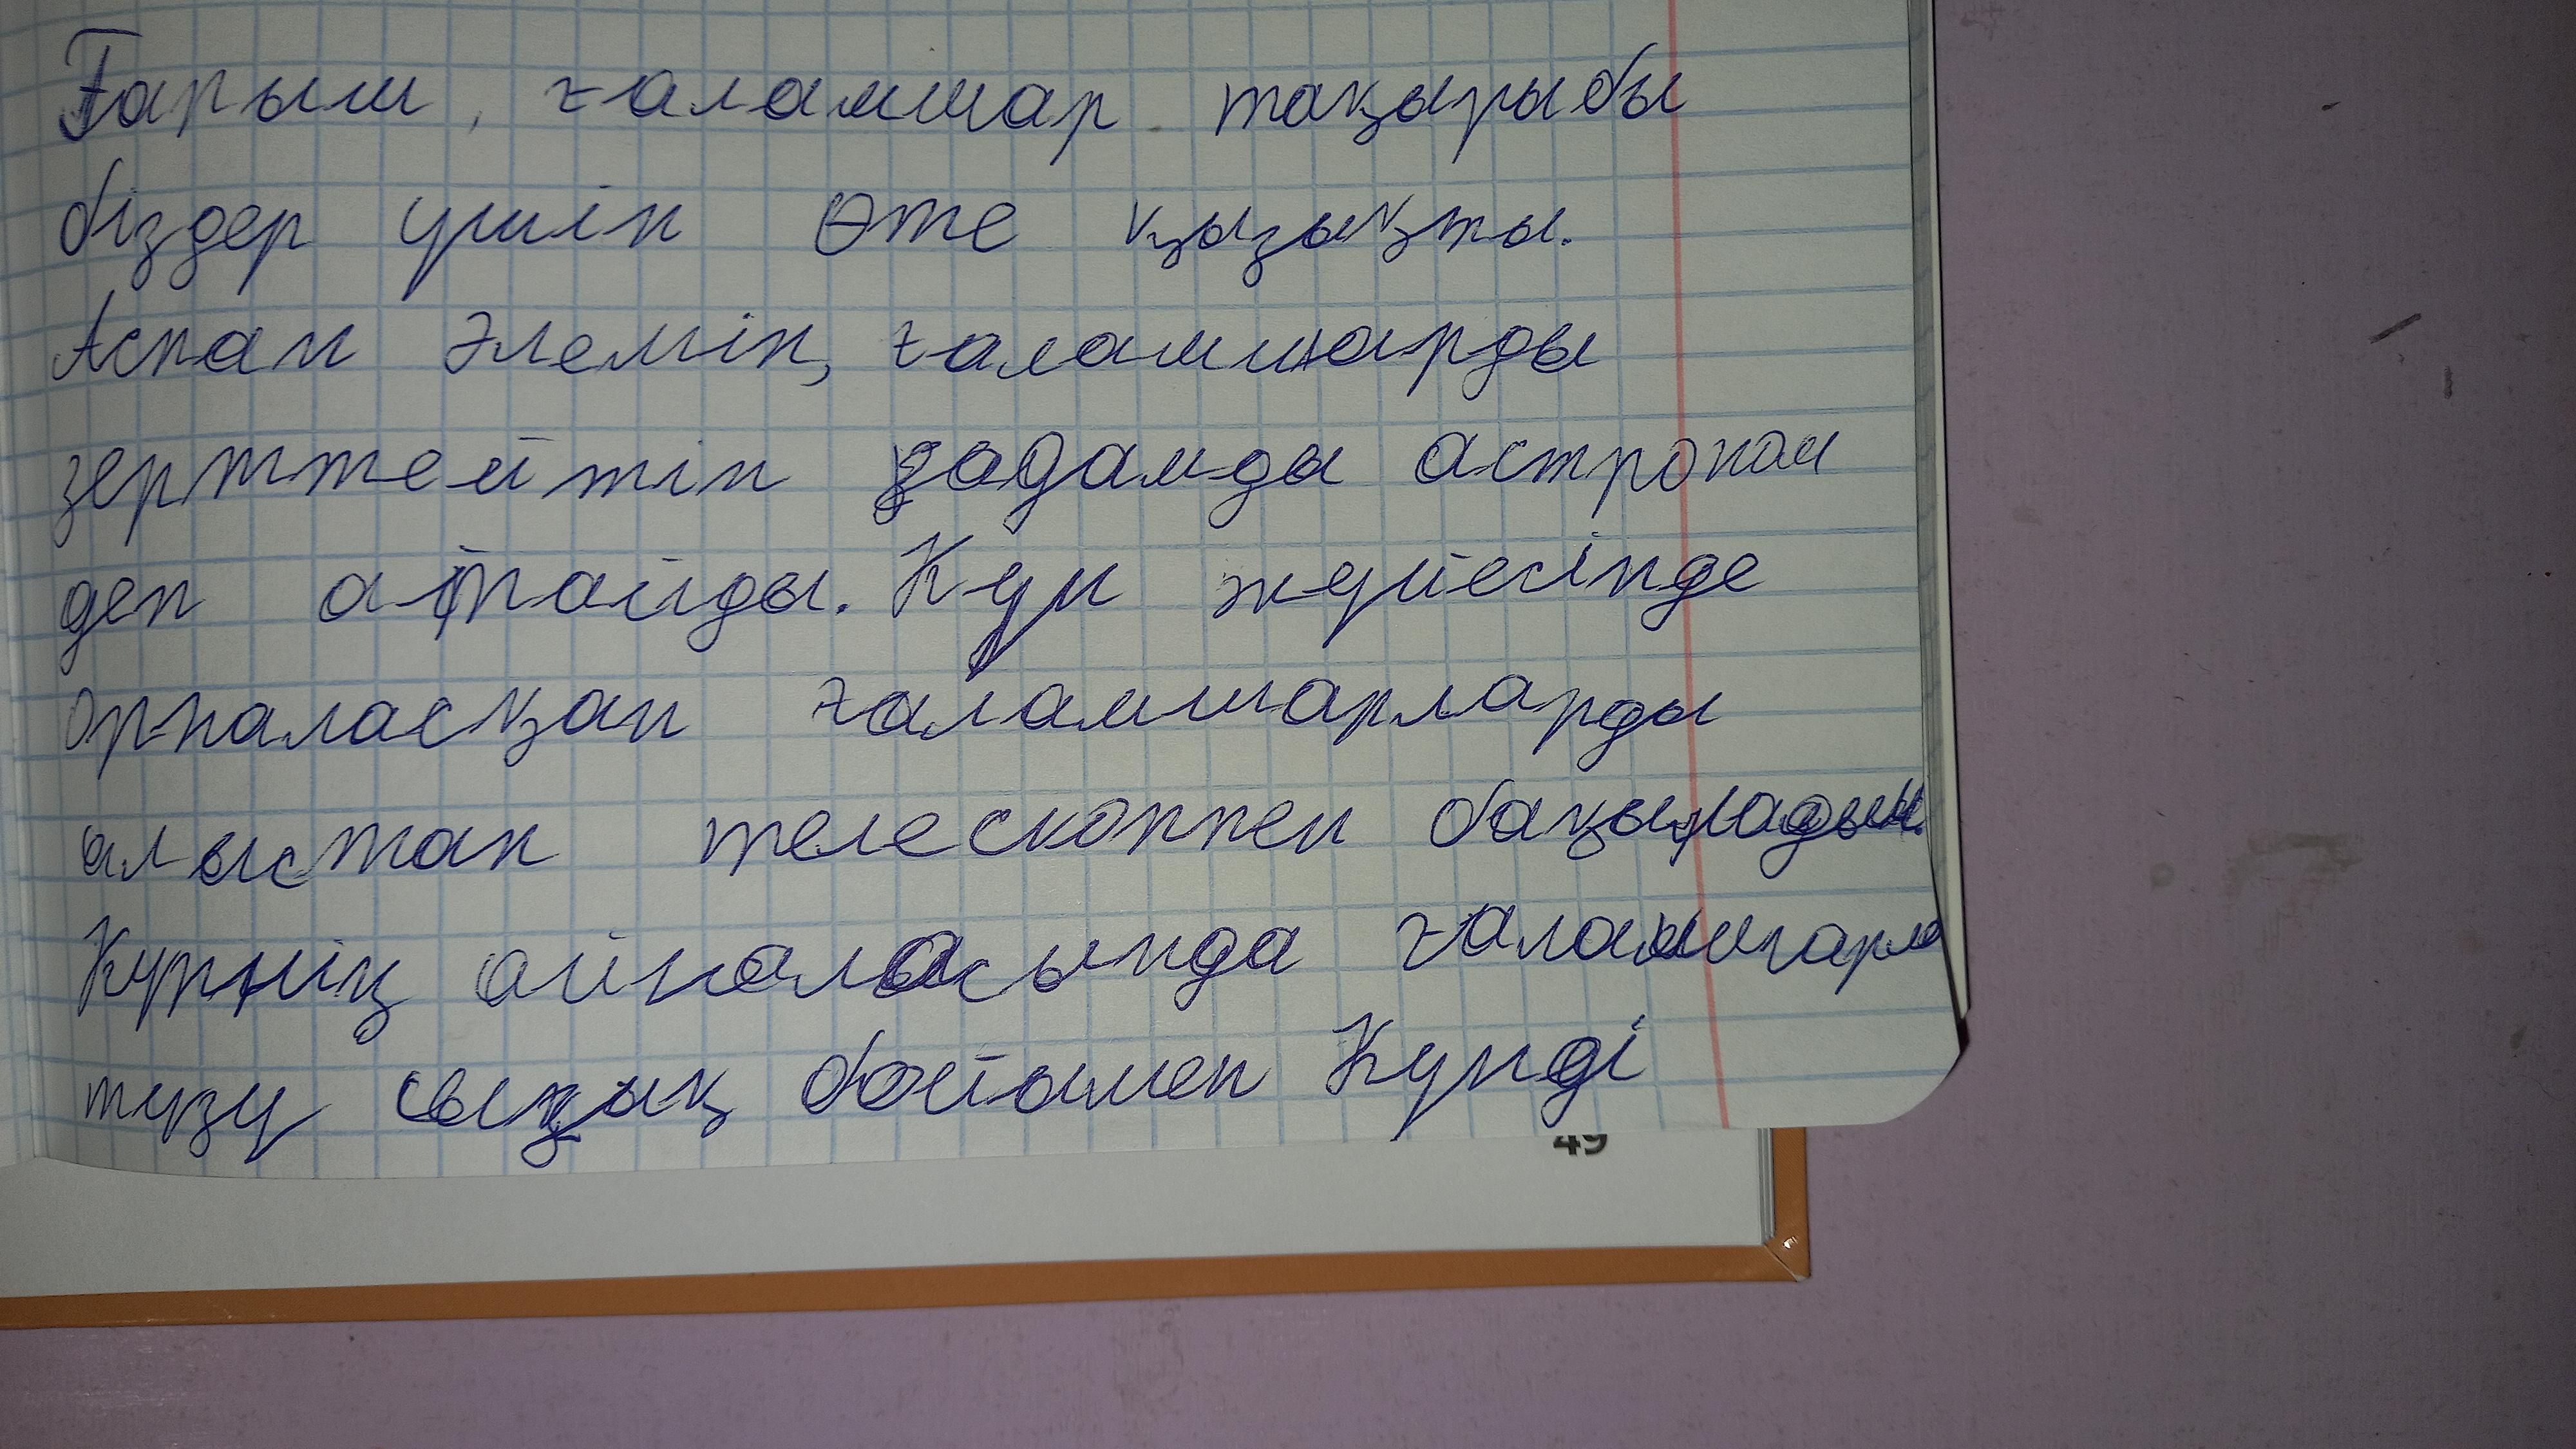 Ғарыш, ғаламшар тақырыбы
біздер үшін өте қызықты.
Аспан әлемін, ғаламшарды
зерттейтін адамды астроном
деп атайды. Күн жүйесінде
орналасқан ғаламшарларды
алыстан телескоппен бақыладым.
Күннің айналасында ғаламшарла
түзу сызық бойымен Күнді
49